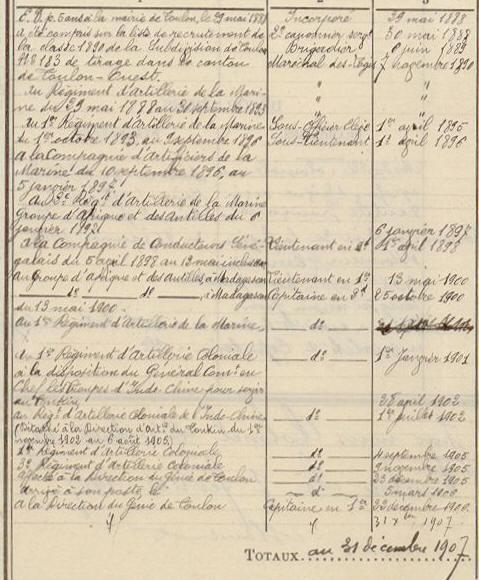 E. V. p. 5 ans à la mairie de Toulon, le 29 mai 1888 Incorporé 29 mai 1888
a été compris sur la liste de recrutement de 2e canonnier serv 30 mai 1888
la classe 1890 de la subdivision de Toulon Brigadier juin 1889
No 183 de tirage dans le canton Maréchal des logis 7 novembre 1890
de Toulon-Ouest. "
au Régiment d'Artillerie de la Mari- " "
ne du 29 mai 1888 au septembre 1893 " "
au 1er Régiment d'Artillerie de la Marine Sous-Officier Elève 1er avril 1895
du 1er octobre 1893 au 9 septembre 1896 Sous-Lieutenant 1er avril 1896
à la Compagnie d'Artificiers de la
Marine du 10 septembre 1896 au
5 janvier
au Rég.t d'Artillerie de la Marine
Groupe d'Afrique et des Antilles du 6
janvier 6 janvier 1898
à la Compagnie de Conducteurs Séné- Lieutenant en 2d avril 1898
galais du 5 avril 1898 au 12 mai inclus
au groupe d'Afrique et des Antilles, à Madagascar Lieutenant en 1er 13 mai 1900
do do à Madagascar Capitaine en 2d 25 octobre 1900
du 13 mai 1900.
au 1er Régiment d'Artillerie de la Marine do
au 1er Régiment d'Artillerie Coloniale do 1er Janvier 1901
à la disposition du Général Com.t en
Chef les troupes d'Indo-Chine pour servir
au Tonkin 28 avril 1902
au Rég.t d'Artillerie Coloniale de l'Indo-Chine do 1er juillet 1902
(Détaché à la Direction d'Art.ie du Tonkin du 1er
novembre 1902 au 6 août 1905)
1er Régiment d'Artillerie Coloniale do septembre 1905
3e Régiment d'Artillerie Coloniale do 2 novembre 1905
affecté à la Direction du Génie de Toulon do 23 décembre 1905
arrivé à son poste le do mars
à la Direction du Génie de Toulon Capitaine en 1er 23 décembre
" " 31 Xbre 1907.
TOTAUX au 31 décembre 1907